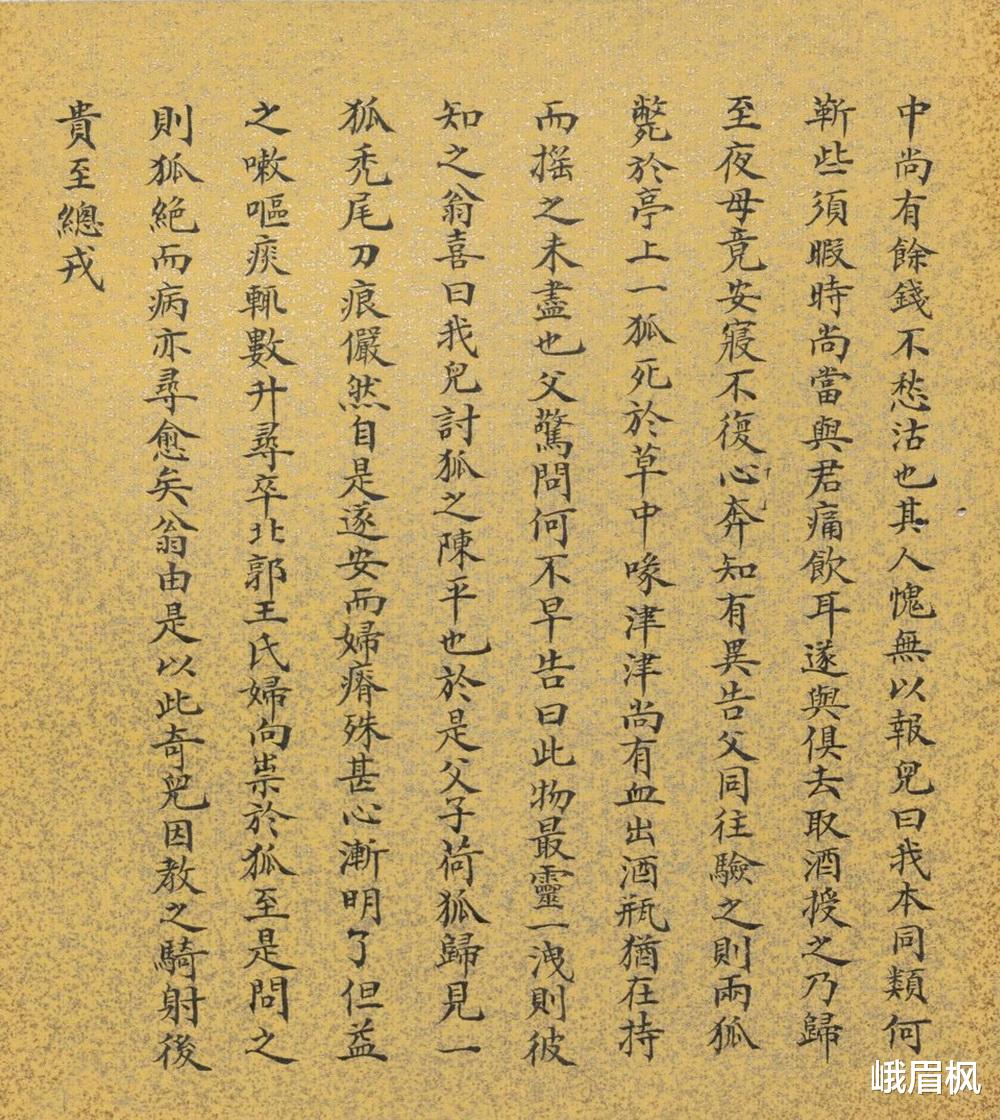 中尚有餘錢不愁沽也其人愧無以報兒曰我本同類何
靳些須暇時尚當與君痛飲耳遂與俱去取酒授之乃歸
至夜母竟安寢不復心奔知有異告父同往驗之則兩狐
斃於亭上一狐死於草中喙津津尚有血出酒瓶猶在持
而搖之未盡也父驚問何不早告曰此物最靈一洩則彼
知之翁喜曰我兒討狐之陳平也於是父子荷狐歸見一
狐禿尾刀痕儼然自是遂安而婦瘠殊甚心漸明了但益
之嗽嘔痰輒數升尋卒北郭王氏婦向祟於狐至是問之
則狐絕而病亦尋愈矣翁由是以此奇兒因教之騎射後
貴至總戎
峨眉枫